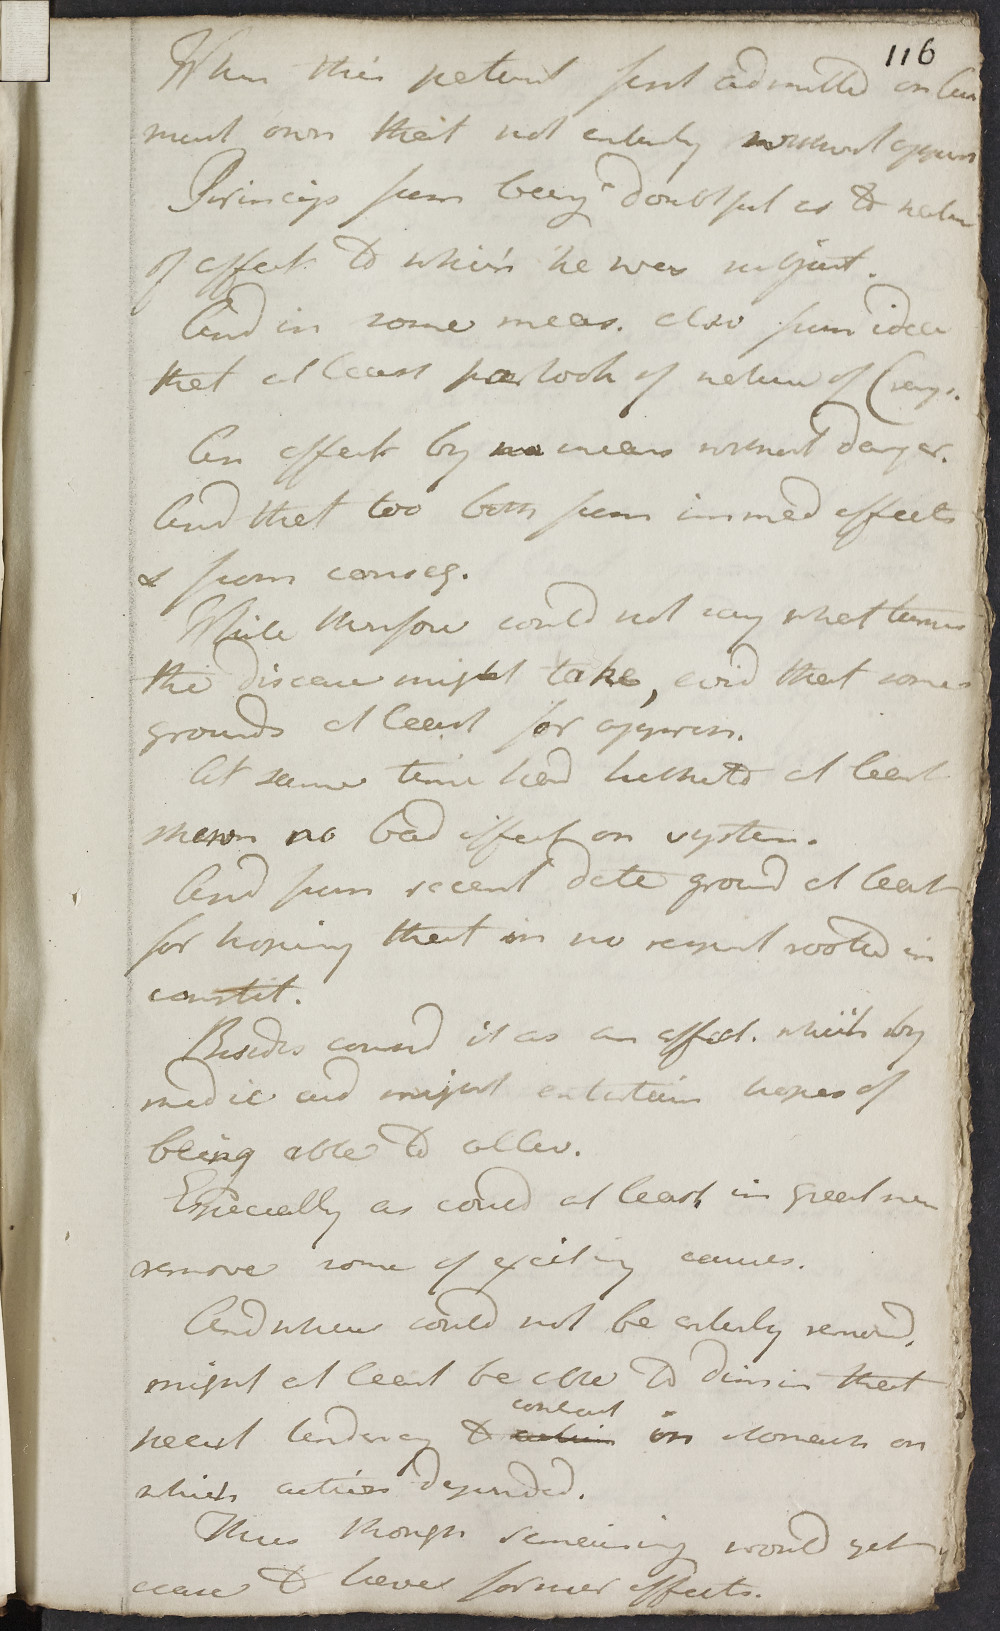 116
When this patient first admitted on
must own that not entirely without
Princip from being doubtful as to
of affect. to which he was subject.
And in some meas. also from idea
that at least partook of nature of
An affect by no means without danger.
And that too both from immed effects
& from conseq.
While therefore could not say what turns
the disease might take, said that some
grounds at least for
At same time had hitherto at least
shewn no bad effect on system.
And from recent date ground at least
for hoping that in no respect rooted in
constit.
Besides consid it as an affect. which by
medic aid might entertain hopes of
being able to allev.
Especially as could at least in great
remove some of exciting causes.
And where could not be entirely removd,
might at least be able to dimin that
tendency to contract in stomach on
which action depended.
Thus though remaining would yet
cease to have former effects.